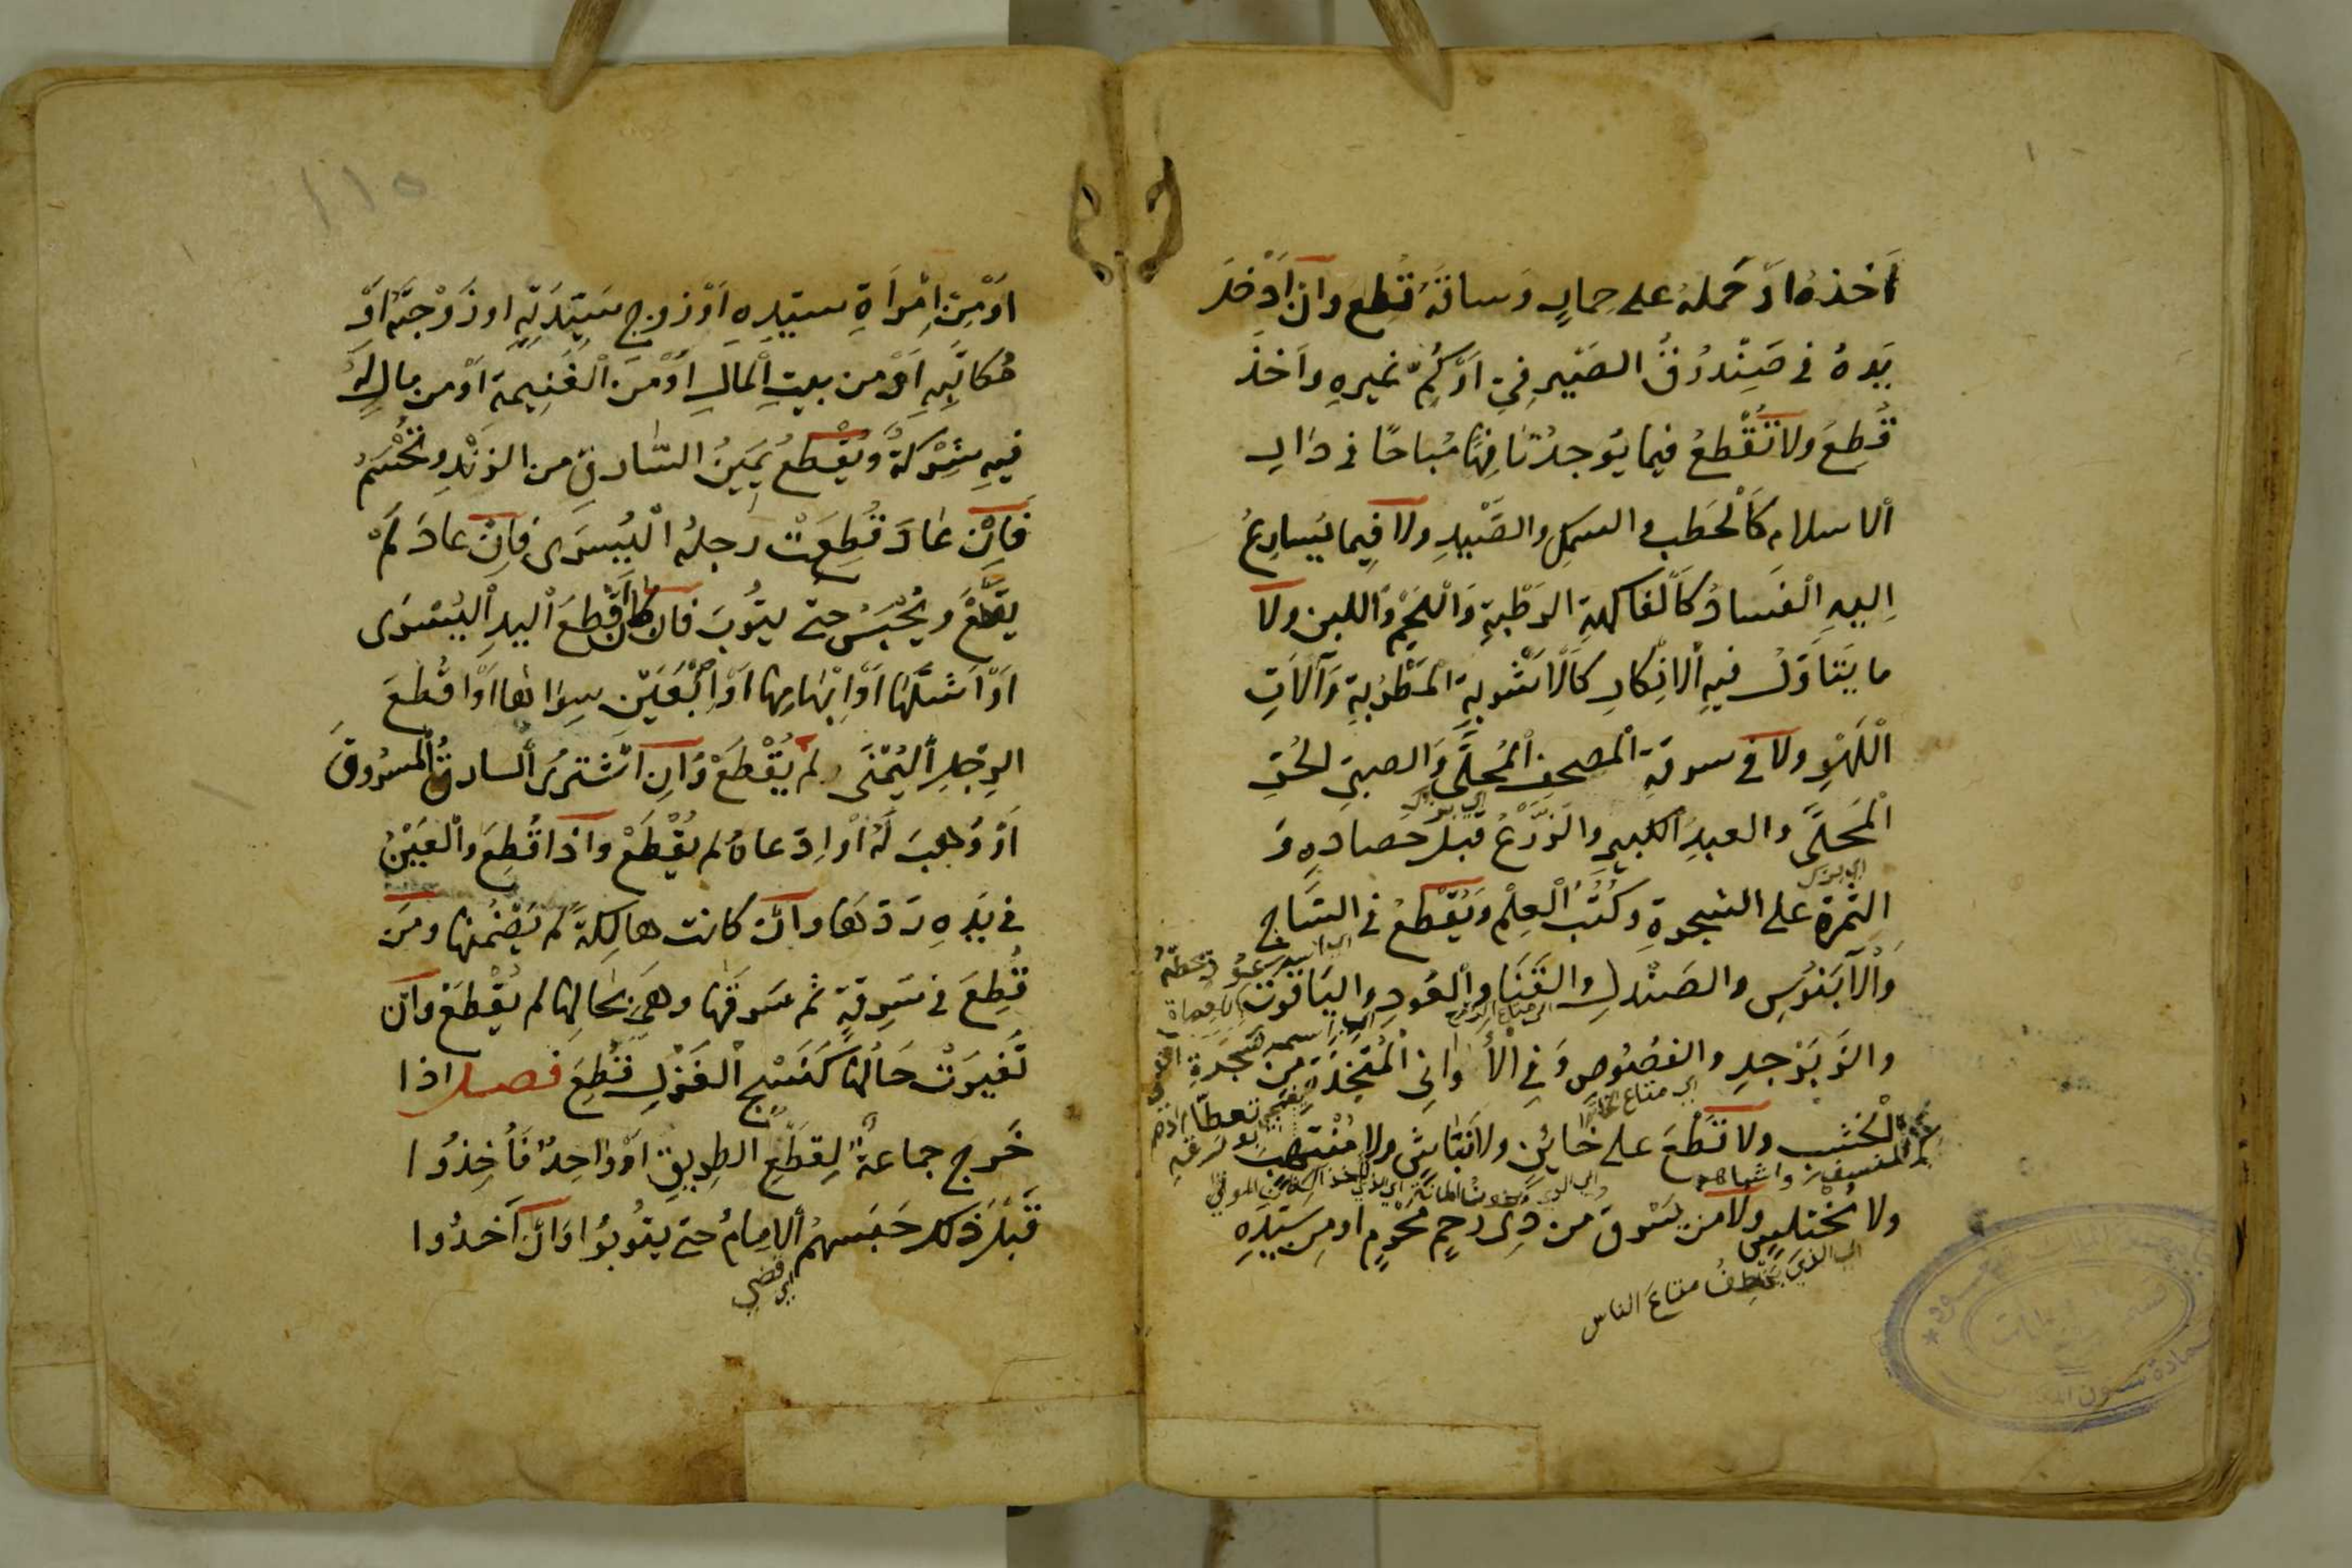 أخذه او حمله على حمار وساقه قطع وان ادخل
يده في صندوق الصيرفي او كم غيره واخذ
قطع ولا تقطع فيما يوجد تافها مباحا في دار
الاسلام كالحطب والسمك والصيد ولا فيما يسارع
اليه الفساد كالفاكهة الرطبة واللحم واللبن ولا
ما يتاول فيه الانكار كالاشربة المطربة وآلات
اللهو ولا في سرقة المصحف المحلى والصبي الحر
المحلى والعبد الكبير والزرع قبل حصاده و
الثمرة على الشجرة وكتب العلم ويقطع في الساج
والآبنوس والصندل والقنا والعود والياقوت
والزبرجد والفصوص وفي الأواني المتخذة من
الخشب ولا تقطع على خائن ولا نباش ولا منتهب
ولا مختلس ولا من يسرق من ذي رحم محرم او من سيده
اي الذي يخطف متاع الناس
١١٥
او من امرأة سيده او زوج سيدته او زوجته او
مكاتبه او من بيت المال او من الغنيمة او من مال له
فيه شركة ويقطع يمين السارق من الزند وتحسم
فان عاد قطعت رجله اليسرى فان عاد لم
يقطع ويحبس حتى يتوب فان كان اقطع اليد اليسرى
او اشلها او ابهامها او اصبعين سواها او اقطع
الرجل اليمنى لم يقطع وان اشترى السارق المسروق
او وهب له او ادعاه لم يقطع واذا قطع والعين
في يده ردها وان كانت هالكة لم يضمنها ومن
قطع في سرقة ثم سرقها وهي بحالها لم يقطع وان
تغيرت حالها كنسج الغزل قطع فصل اذا
خرج جماعة لقطع الطريق او واحد فأخذوا
قبل ذلك حبسهم الامام حتى يتوبوا وان أخذوا